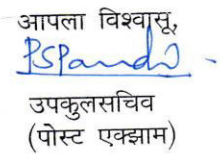 आपला विश्वासू,
उपकुलसचिव
(पोस्ट एक्झाम)